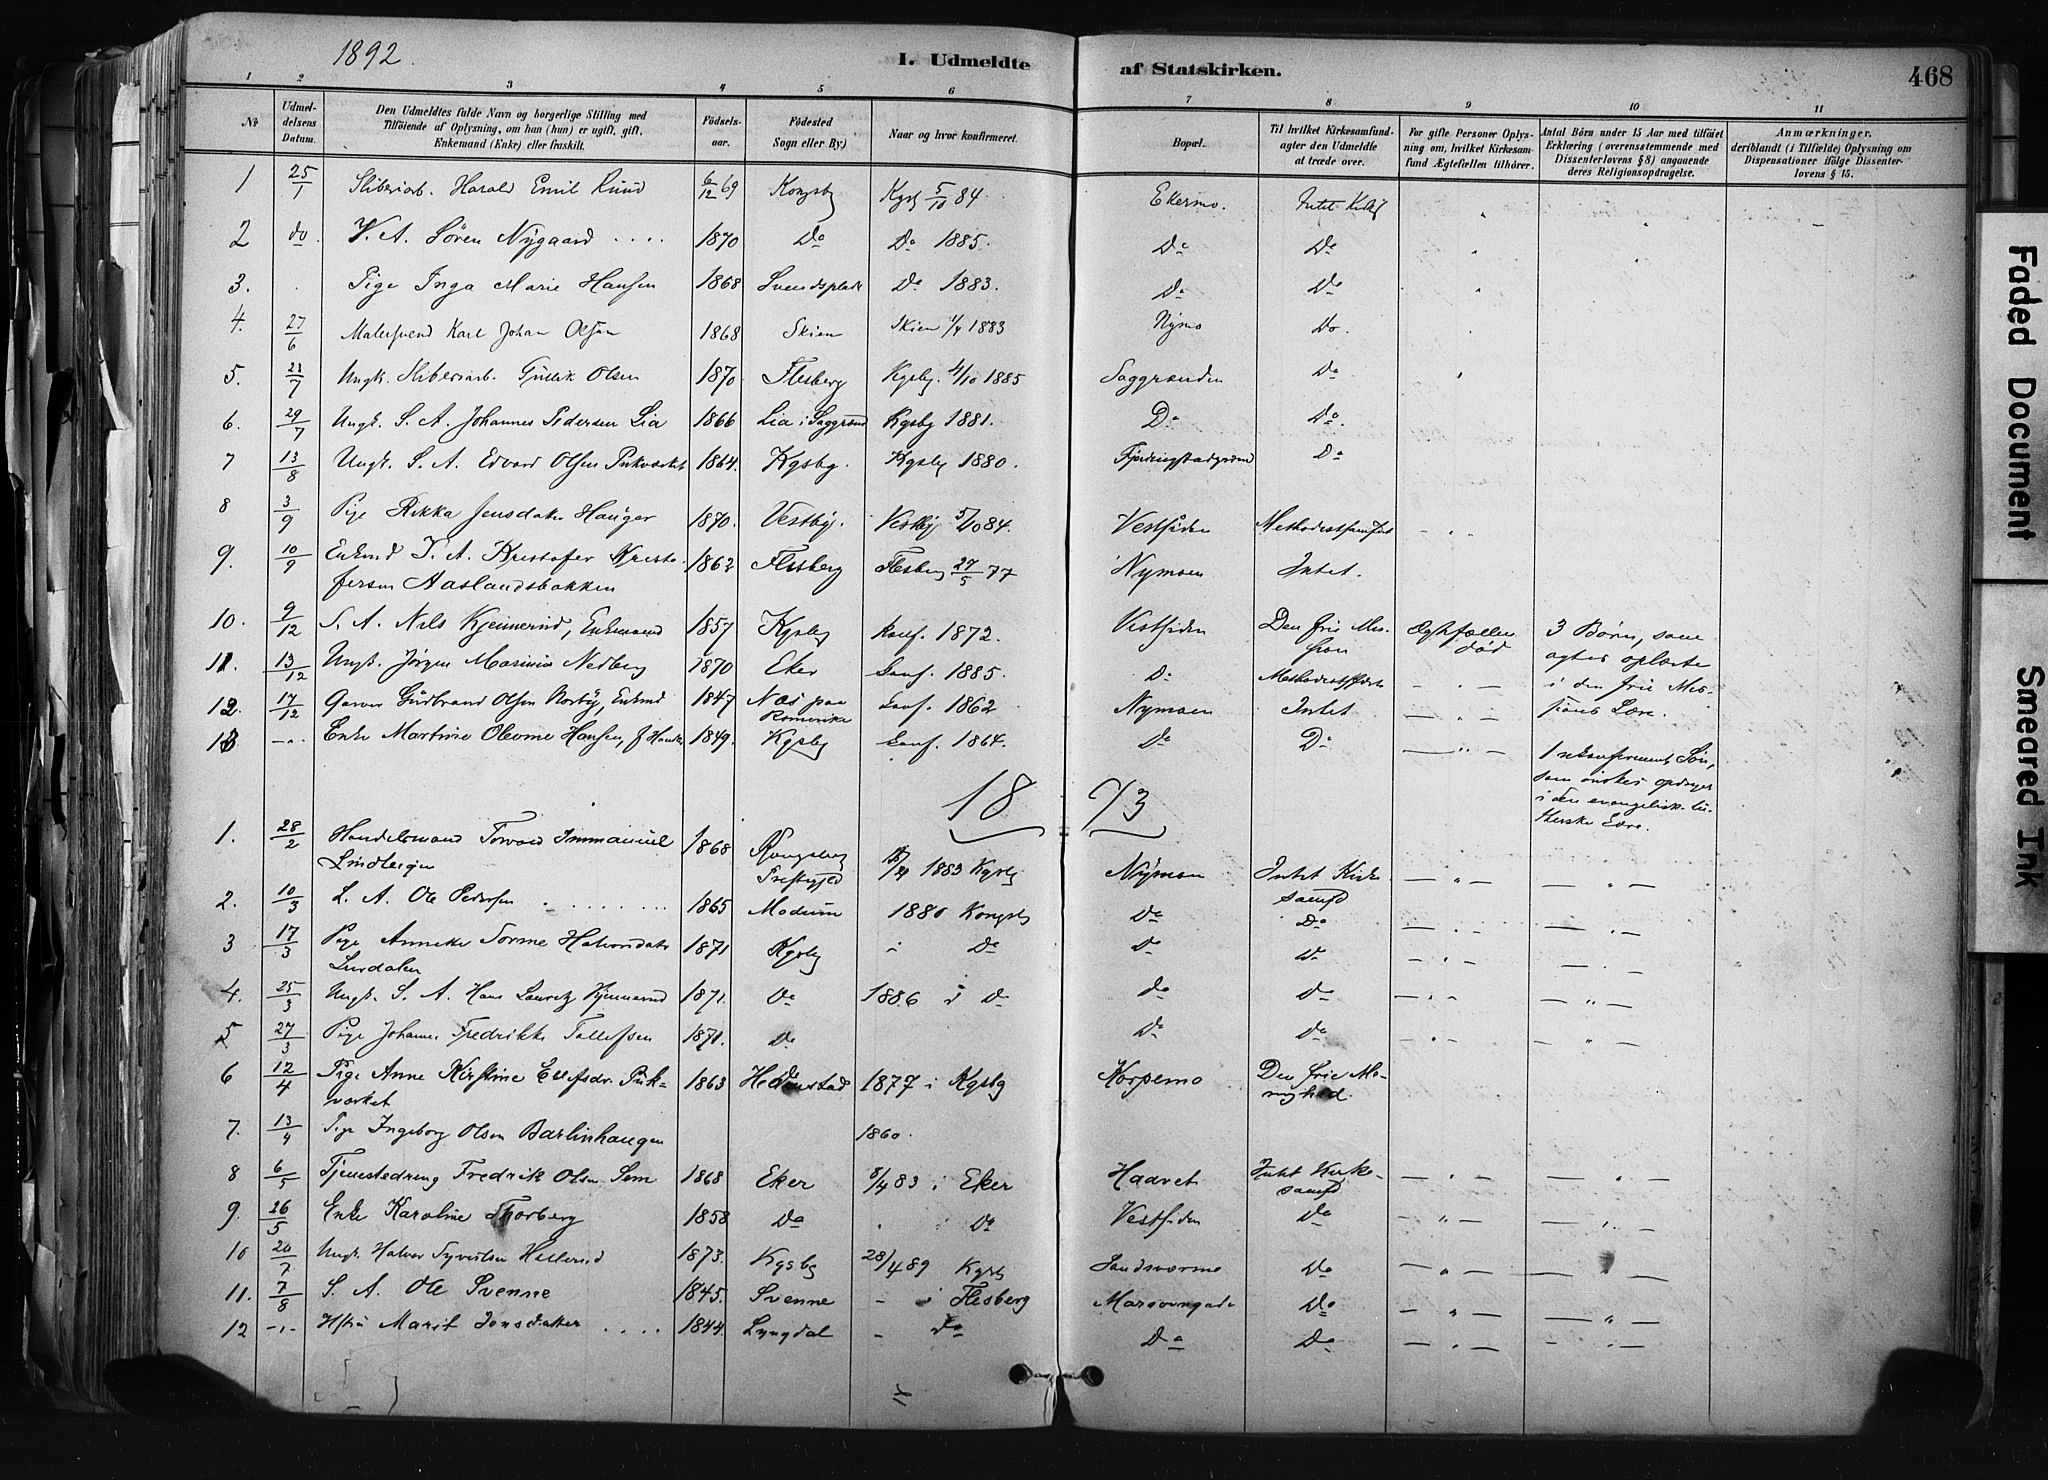 1892.
I. Udmeldte af Statskirken.
468
1 2 3 4 5 6 7 8 9 10 11
No
Udmeldelsens Datum.
Den Udmeldtes fulde Navn og borgerlige Stilling med
Tilføiende af Oplysning, om han (hun) er ugift, gift,
Enkemand (Enke) eller fraskilt.
Fødselsaar.
Fødested
Sogn eller By)
Naar og hvor konfirmeret.
Bopæl.
Til hvilket Kirkesamfund
agter den Udmeldte
at træde over.
For gifte Personer Oplysning
om, hvilket Kirkesamfund
Ægtefællen tilhører.
Antal Børn under 15 Aar med tilføiet
Erklæring (overensstemmende med
Dissenterlovens § 8) angaaende
deres Religionsopdragelse.
Anmærkninger,
deriblandt (i Tilfælde) Oplysning om
Dispensationer ifølge Dissenterlovens § 15.
1 25/1 Harald Emil Ruud 6/12 69 Kongsb Kgsb 5/10 84 Ekermo. Intet
2 do. V. A. Sören Nygaard .... 1870 Do Do 1885. Do Do
3. Pige Inga Marie Hansen 1868 Do 1883. Do Do
4. 27/6 Malersvend Karl Johan Olsen 1868 Skien Skien 1883 Nymo Do.
5. 23/7 Ungk. Gullik Olsen 1870 Flesberg Kgsbg. 4/10 1885 Saggrenden Do
6. 29/7 Ungk. S. A. Johannes Pedersen Lia 1866 Lia i Saggrend Kgsbg 1881. Do Do.
7 13/8 Ungk. S. A. Edvard Olsen Pukværket 1864. Kgsbg. Kgsbg 1880. Do
8 3/9 Pige Rikka Jensdatter Hauger 1870. Vestby. Vestby 5/10 84. Vestsiden
9. 10/9 Enkmd S. A. Kristofer Kristo-
fersen Aaslandsbakken 1862 Flesberg Flesberg 27/5 77 Nymoen Intet.
10. 9/12 S. A. Nils Kjennerud, Enkemand 1857 Kgsbg konf. 1872. Vestsiden Den frie Mis-
sion Ægtefællen
död 3 Børn, som
agtes oplærte
i den frie Mis-
sions Lære.
11 13/12 Ungk. Jörgen Marinius Nedberg 1870 Eker konf. 1885. Do
12 17/12 Garver Gudbrand Olsen Norby, Enkmd 1847 Næs paa
Romerike konf. 1862 Nymoen Intet
13 -"- Enke Martine Olevine Hansen, 1849. Kgsbg konf. 1864. Do Do
1 ukonfirmeret Sön,
som önskes opdraget
i den evangelisk-lu-
therske Lære.
18 93
1. 28/2 Handelsmand Torvald Immanuel
1868 Kongsberg
Prestegjeld 1883 Kgsbg Nymoen Intet Kirke-
samfd
2. 10/3 L. A. Ole Pedersen 1865 Modum 1880 Kongsb Do Do
3 17/3 Pige Anneke Halvorsdatter
Lurdalen 1871 Kgsbg Do Do Do
4. 25/3 Ungk. S. A. Hans Lauritz Kjennerud 1871. Do 1886 i Do do Do
5 27/3 Pige Johanne Fredrikke Tollefsen 1871. Do Do Do
6 12/4 Pige Anne Kirstine Ellefsdr. Puk-
værket 1863 Hedenstad 1877 i Kgsbg Korpemo Den frie Me-
nighed.
7. 13/4 Pige Ingeborg Olsen Barlinhaugen 1860.
8 6/5 Tjenestedreng Fredrik Olsen Sem 1868 Eker 8/4 83 i Eker Haavet Intet Kirke-
samfd
9. 26/5 Enke Karoline Thorberg 1858 Do Do Vestsiden Do
10 20/7 Ungk. Halvor 1873. Kgsbg 28/4 89 Kgsb Sandsværmo Do
11. 7/8 S. A. Ole Svenne 1845. Svenne - i Flesberg Do
12 -"- Hstru Marit Jonsdatter .... 1844. Lyngdal - Do Do Do
Faded Document
Smeared Ink